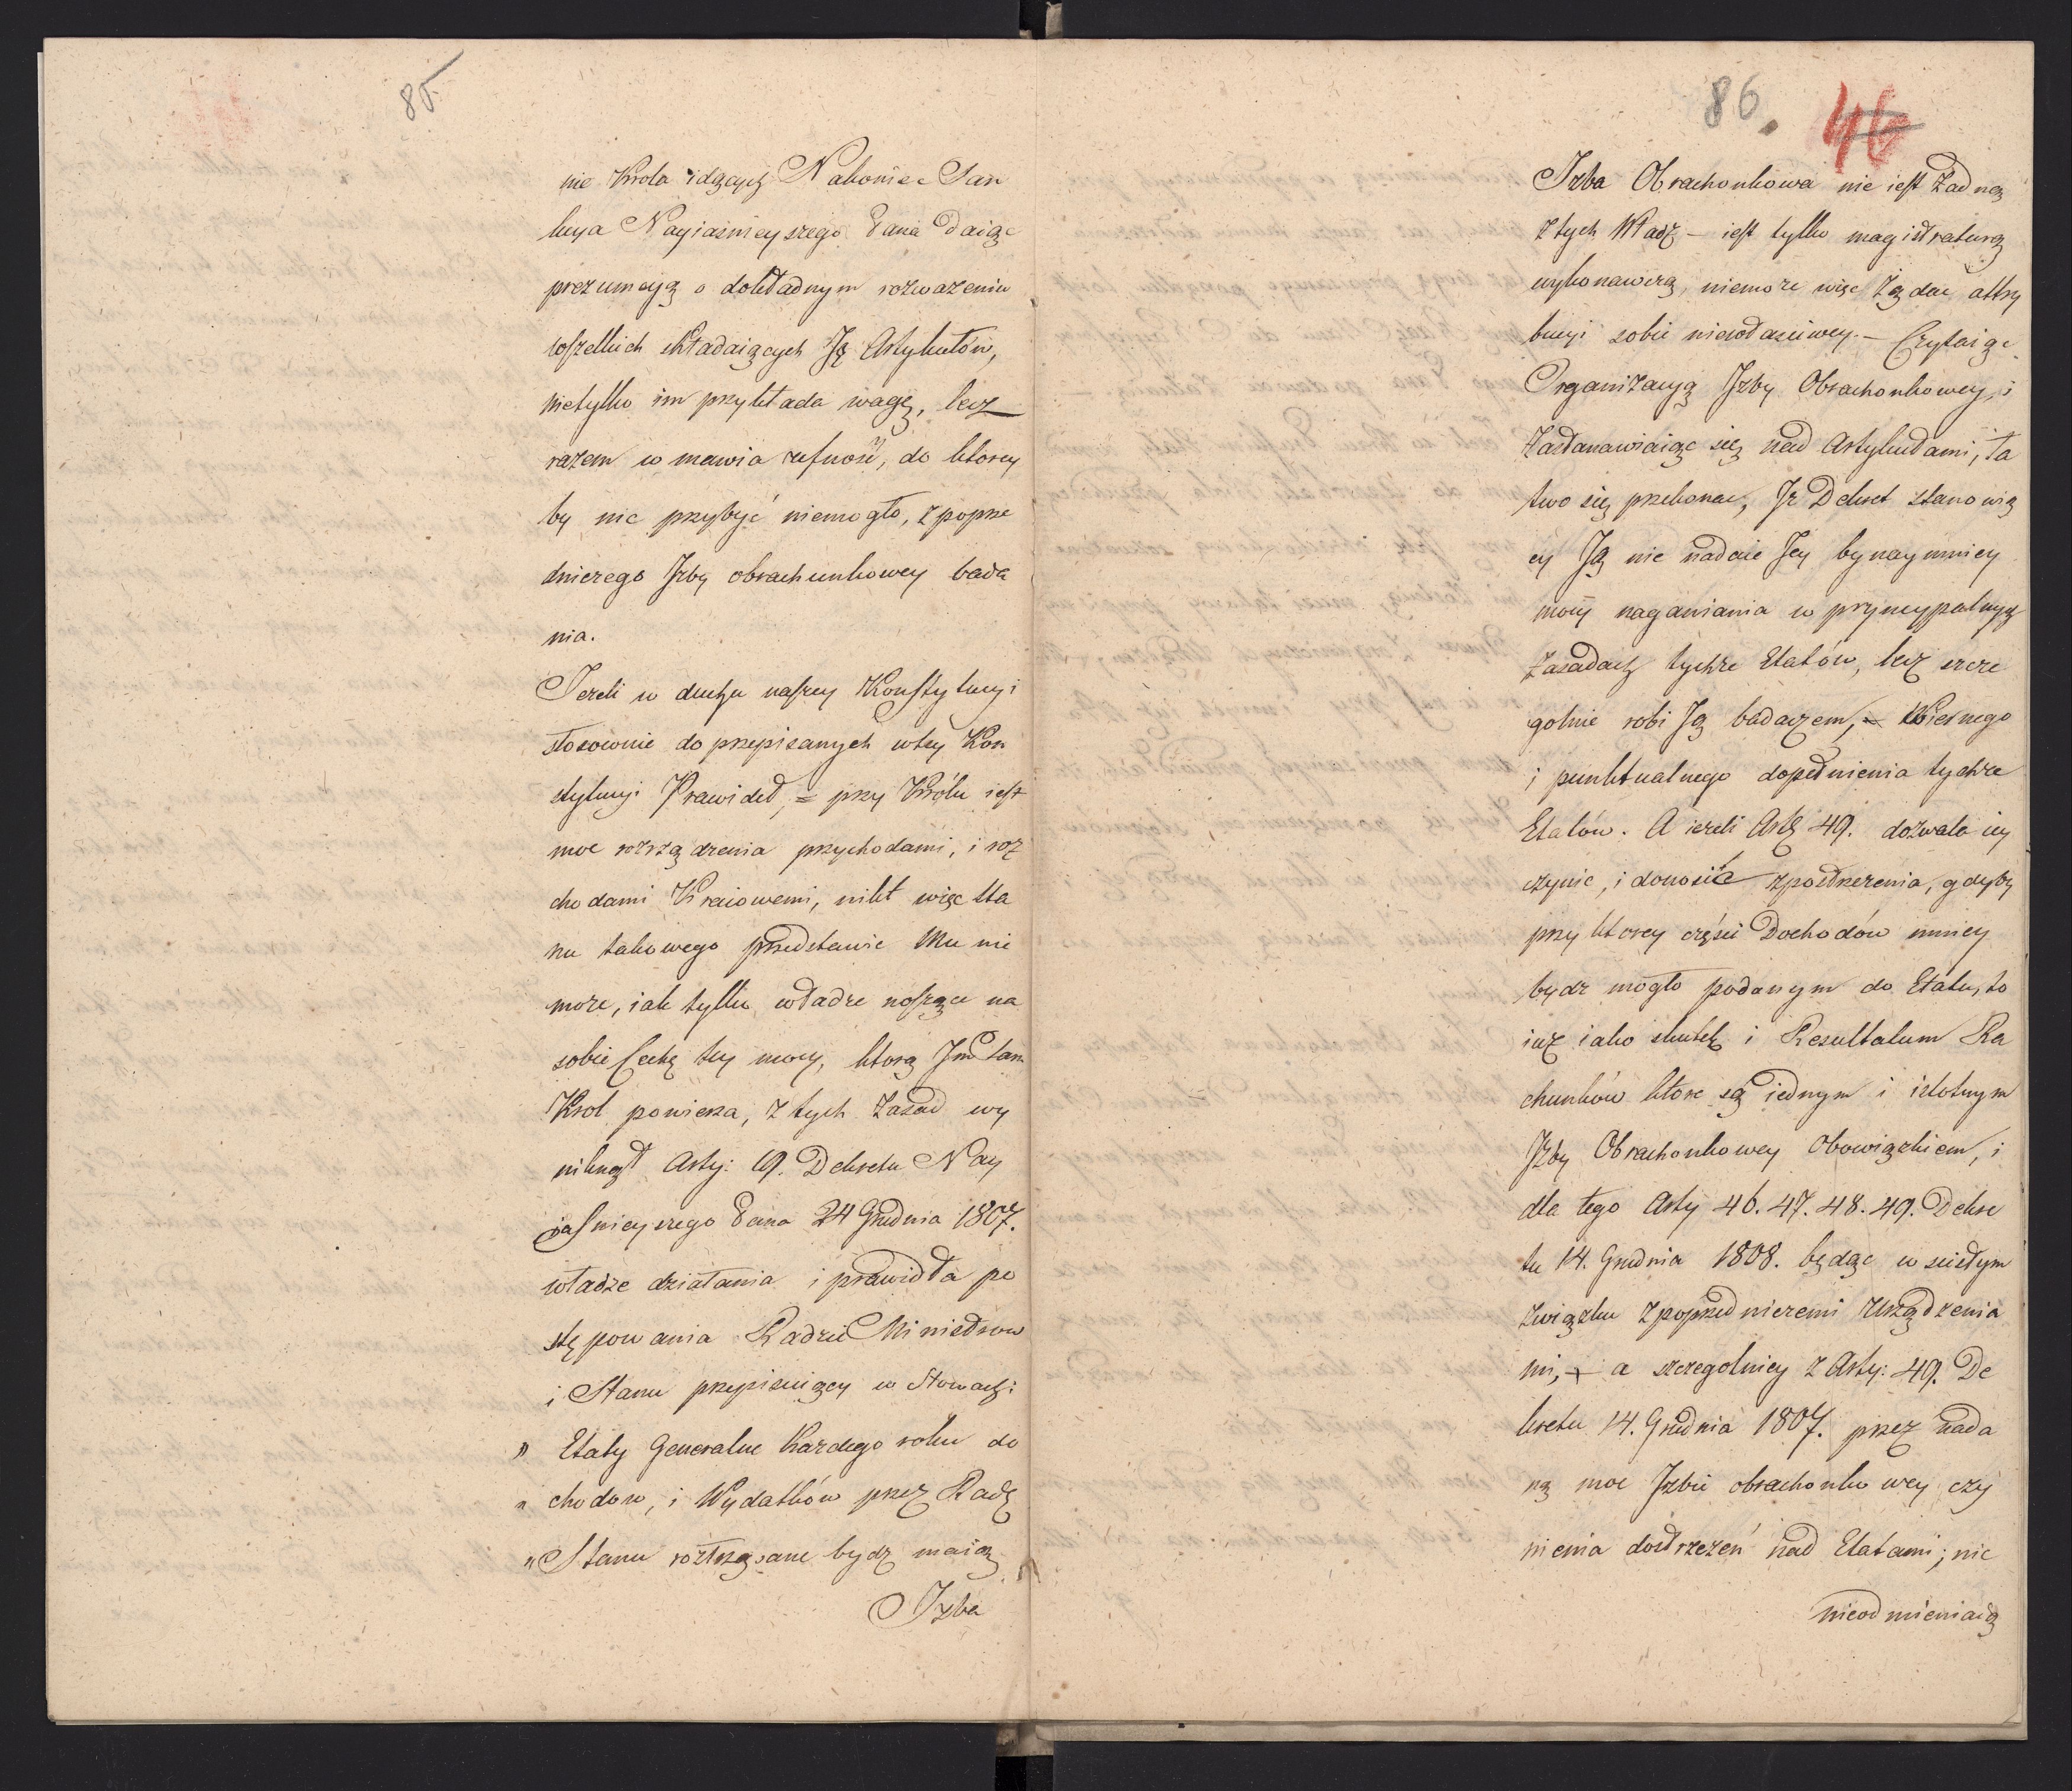 85.
nie Krola idących Nakoniec San
kcya Nayiaśnieyszego Pana daiąc
prezumcyą o dokładnym rozważeniu
wszelkich składaiących Ją Artykułów,
nietylko im przykłada wagę, lecz
razem wmawia ufność, do ktorey
by nic przybyć niemogło, z poprze
dniczego Jzby obrachunkowey bada
nia.
Jeżeli w duchu naszey Konstytucyi
stosownie do przepisanych wtey Kon
stytucyi Prawideł, = przy Królu iest
moc rozrządzenia przychodami, i roz
chodami Kraiowemi, nikt więc sta
nu takowego przedstawić Mu nie
może, iak tylko władze noszące na
sobie Cechę tey mocy, ktorą Jm tam
Krol powierza, z tych Zasad wy
niknął Arty: 19. Dekretu Nay
iaśnieyszego Pana 24 Grudnia 1807.
władze działania i prawidła po
stępowania Radzie Ministrow
i Stanu przepisuiący w Słowach:
" Etaty Generalne Każdego roku do
" chodow, i Wydatków przez Radę
" Stanu roztrząsane bydź maią
Jzba
86.
46
Jzba Obrachonkowa nie iest Żadną
z tych Władz – iest tylko magistraturą
wykonawczą, niemoże więc Żądać attry
bucyi sobie niewłaściwey. – Czytaiąc
Organizacyą Jzby Obrachonkowey, i
Zastanawiaiąc się nad Artykułami, ła
two się przekonać, Jż Dekret stanowią
cy Ją nie nadaie Jey bynaymniey
mocy naganiania w pryncypalnych
Zasadach tychże Etatów, lecz szcze
golnie robi Ją badaczem, = Wiernego
i punktualnego dopełnienia tychże
Etatów. A ieżeli Arty 49. dozwala iey
czynić, i donosić spostrzeżenia, gdyby
przy ktorey części Dochodów mniey
bydź mogło podanym do Etatu, to
iuż iako skutek i Resultatum Ra
chunków ktore są iednym i istotnym
Jzby Obrachonkowey Obowiązkiem, i
dla tego Arty 46. 47. 48. 49. Dekre
tu 14. Grudnia 1808. będąc w ścisłym
Związku z poprzedniczemi Urządzenia
mi, – a szczegolniey z Arty: 49. De
kretu 14. Grudnia 1807. przez nada
ną moc Jzbie obrachonkowey czy
nienia dostrzeżeń nad Etatami; nic
nieodmieniaią